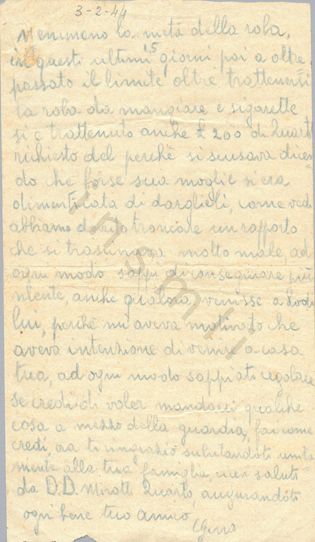 3-2-44
Nemmeno la metà della roba,
in questi ultimi 15 giorni poi a oltre-
passato il limite oltre trattenersi
la roba da mangiare e sigarette
si è trattenuto anche £ 200 di Quarto
richiesto del perchè si scusava dicen
do che forse sua moglie si era
dimenticata di dargliele, come vedi
abbiamo dovuto troncare un rapporto
che si trascinava molto male, ad
ogni modo di consegnare più
niente, anche qualora venisse a
lui, perchè mi aveva motivato che
aveva intenzione di venire a casa
tua, ad ogni modo sappiati regolare
se credi di voler mandarci qualche
cosa a mezzo della guardia, fai come
credi, ora ti ringrazio salutandoti unita
mente alla tua famiglia, saluti
da D.D. Mirotti Quarto augurandoti
ogni bene tuo amico